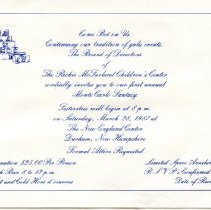 Come Bet on Us
Continuing our tradition of gala events,
The Board of Directors
of
The Richie McFarland Children's Center
cordially invites you to our first annual
Monte Carlo Fantasy
Festivities will begin at 8 p.m.
on Saturday, March 28, 1987 at
The New England Center
Durham, New Hampshire
Formal Attire Requested
Donation $25.00 Per Person
Cash Bar 8 to 12 p.m.
Hot and Cold Hors d'oeuvres
Limited Space Available
R.S.V.P.'s Confirmed
Date of